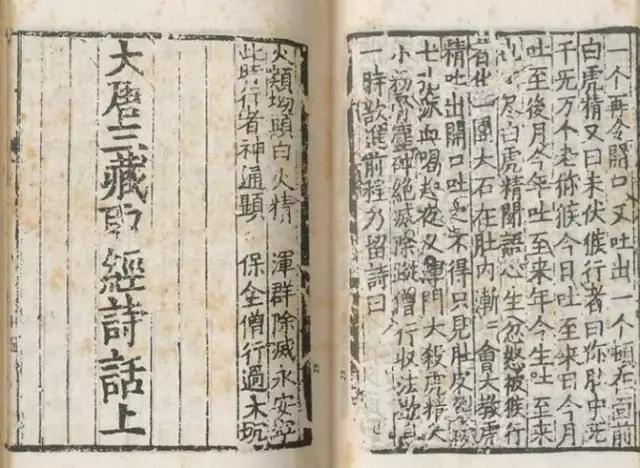 一个再令開口又吐出一个頓在面前
白虎精又曰未伏猴行者曰你肚中无
千无万个老弥猴今日吐至來日今月
吐至後月今年吐至來年今生吐至來
生也不盡白虎精聞語心生忿怒被猴行
者化一團大石在肚内漸〻會大教虎
精吐出開口吐之不得只見肚皮
七孔流血喝起夜叉渾門大殺虎精大
小粉骨塵碎絶滅除蹤僧行収法歇息
一時欲進前程乃留詩曰
火類坳頭白火精 渾群除滅永安寧
此時行者神通顯 保全僧行過大坑
大唐三藏取經詩話上